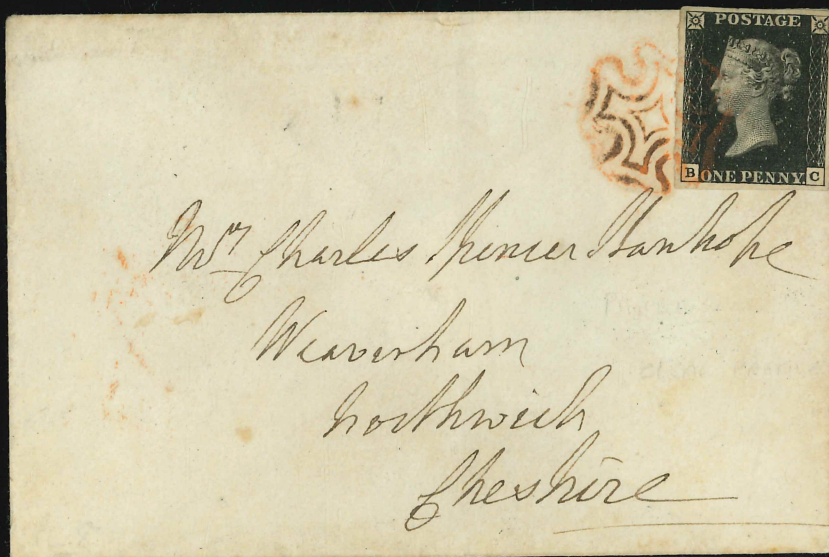 POSTAGE
B ONE PENNY. C
Mrs. Charles Spencer Stanhope
Weaverham
Northwich
Cheshire